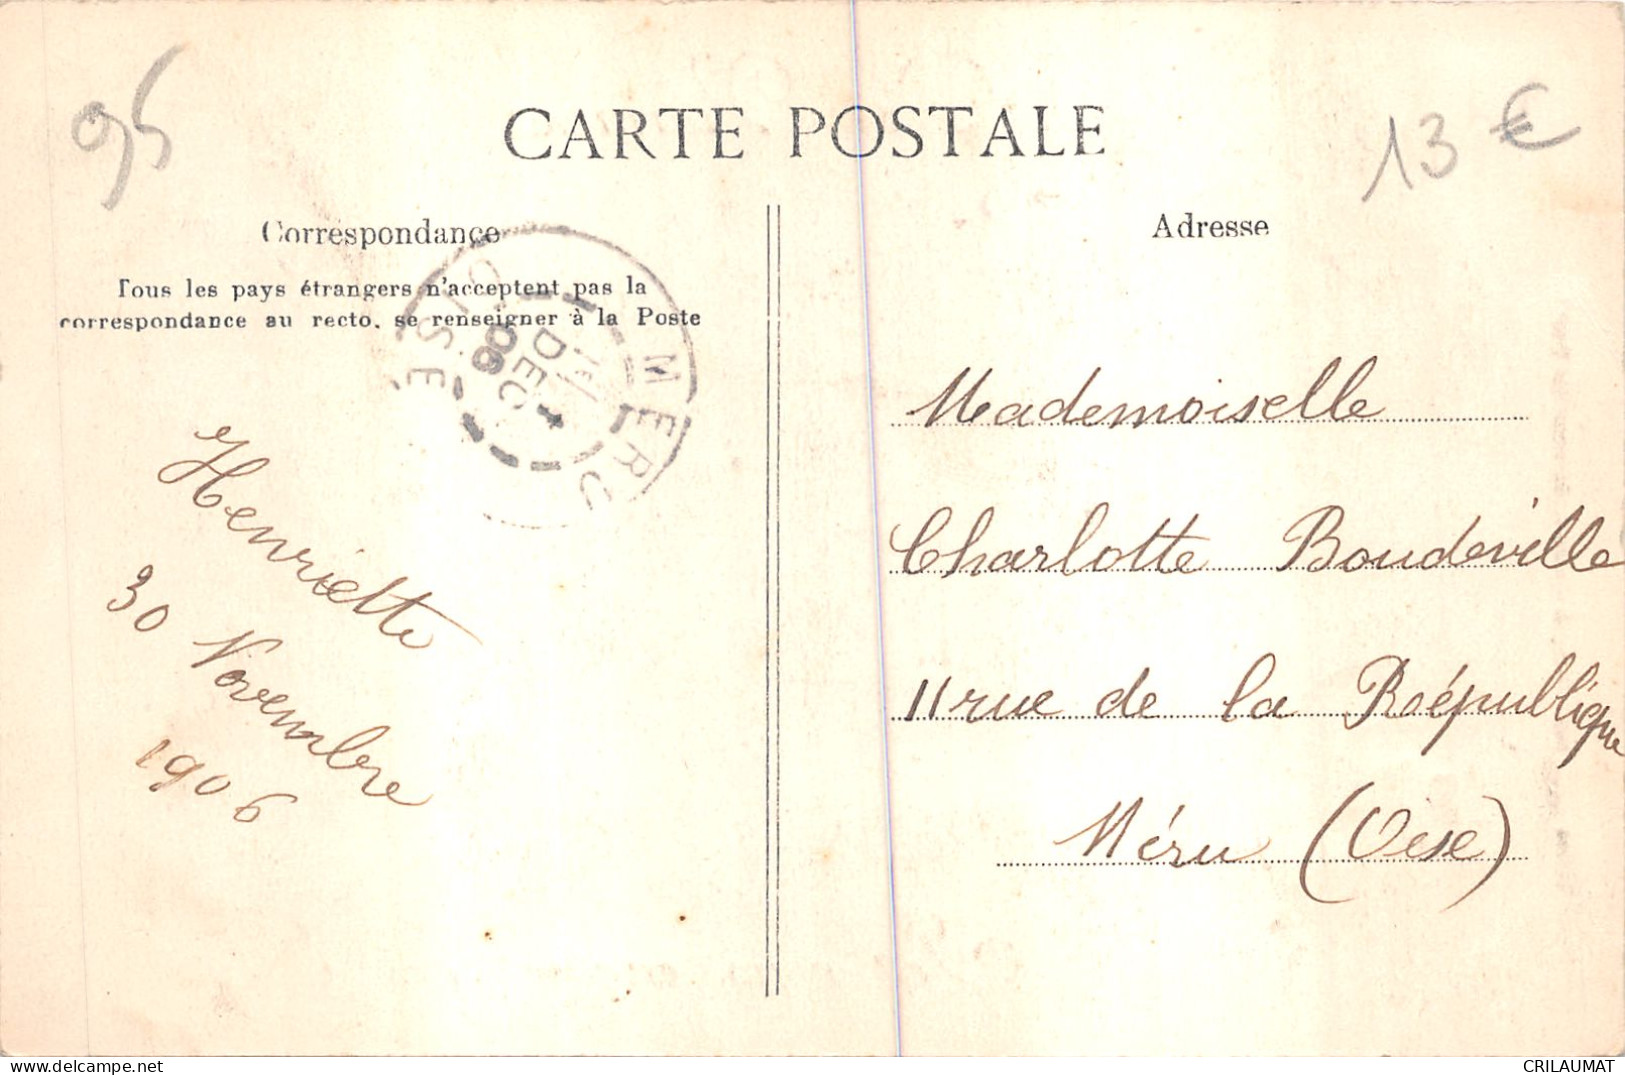 95
13 €
CARTE POSTALE
Correspondance
Tous les pays étrangers n'acceptent pas la
correspondance au recto, se renseigner à la Poste
MERU
OISE
1 DEC
06
Henriette
30 Novembre
1906
Adresse
Mademoiselle
Charlotte Boudeville
11 rue de la République
Méru (Oise)
delcampe.net
CRILAUMAT